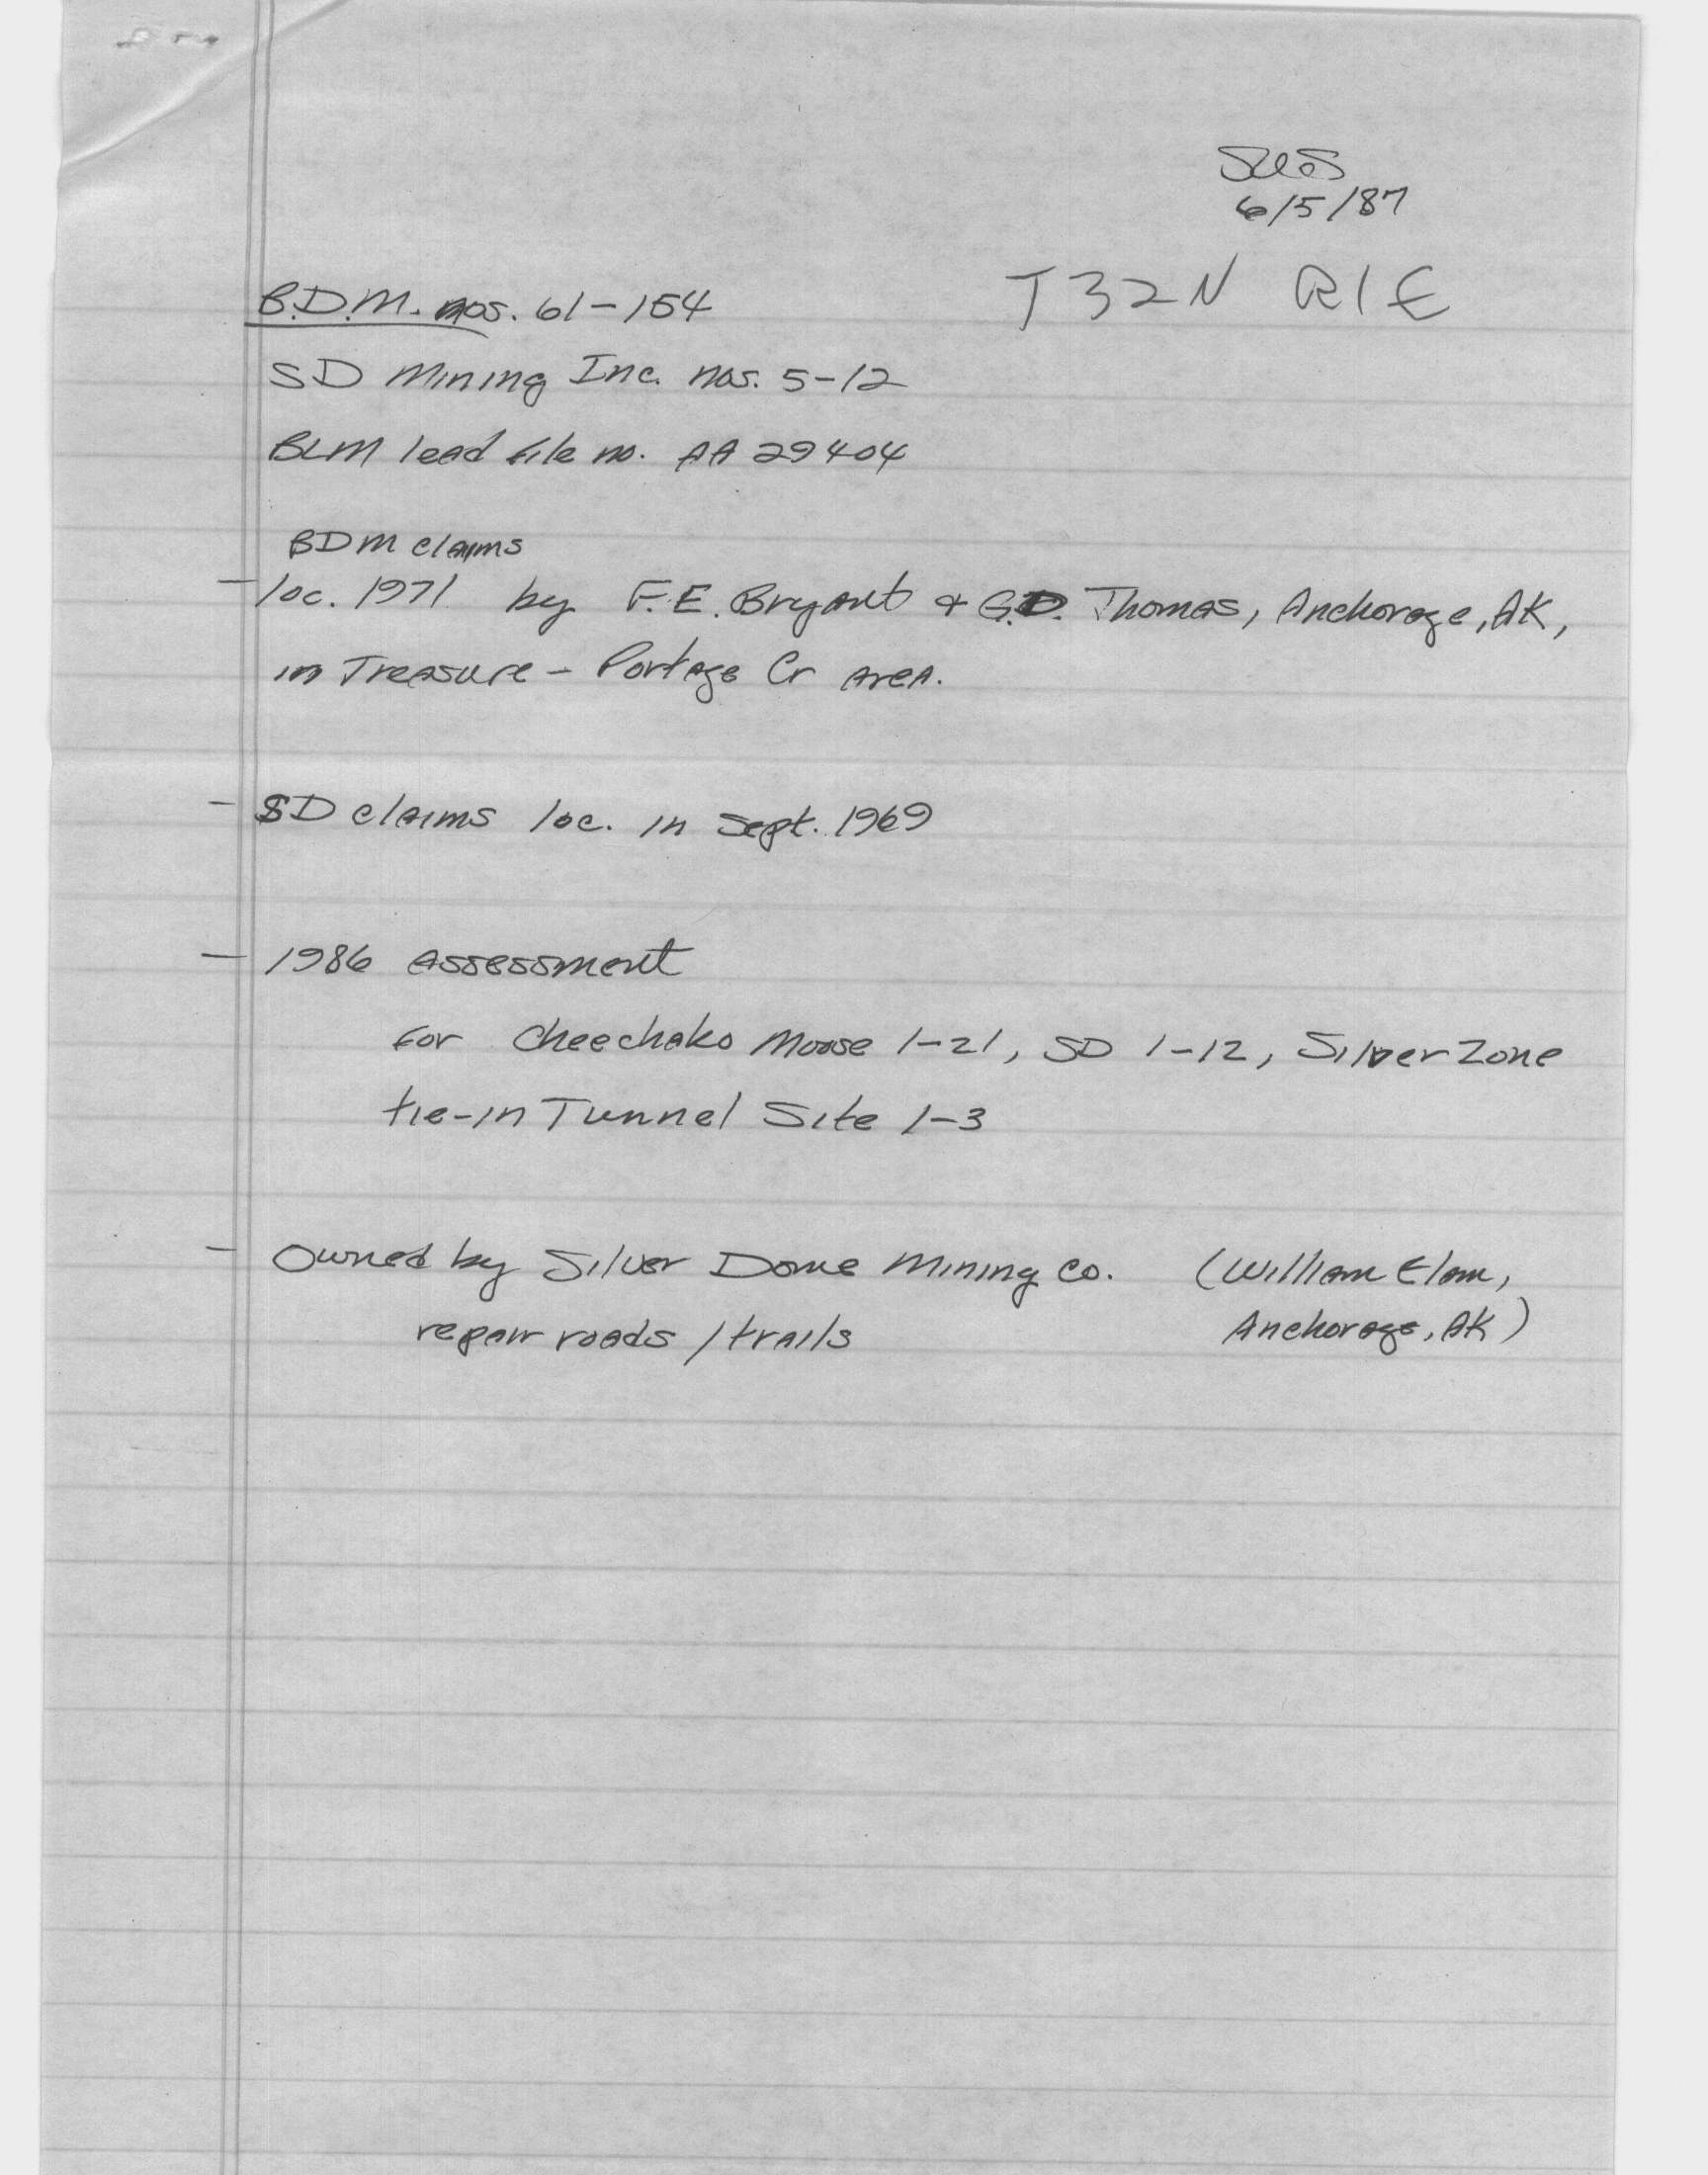 6/5/87
T32N R1E
B.D.M. nos. 61-154
SD Mining Inc. nos. 5-12
BLM lead file no. AA 29404
BDM claims
- loc. 1971 by F.E. Bryant & G.D. Thomas, Anchorage, AK,
in Treasure - Portage Cr area.
- SD claims loc. in Sept. 1969
- 1986 assessment
for Cheechako Moose 1-21, SD 1-12, Silver Zone
tie-in Tunnel Site 1-3
- Owned by Silver Dome Mining Co. (William Elam,
repair roads / trails Anchorage, AK)